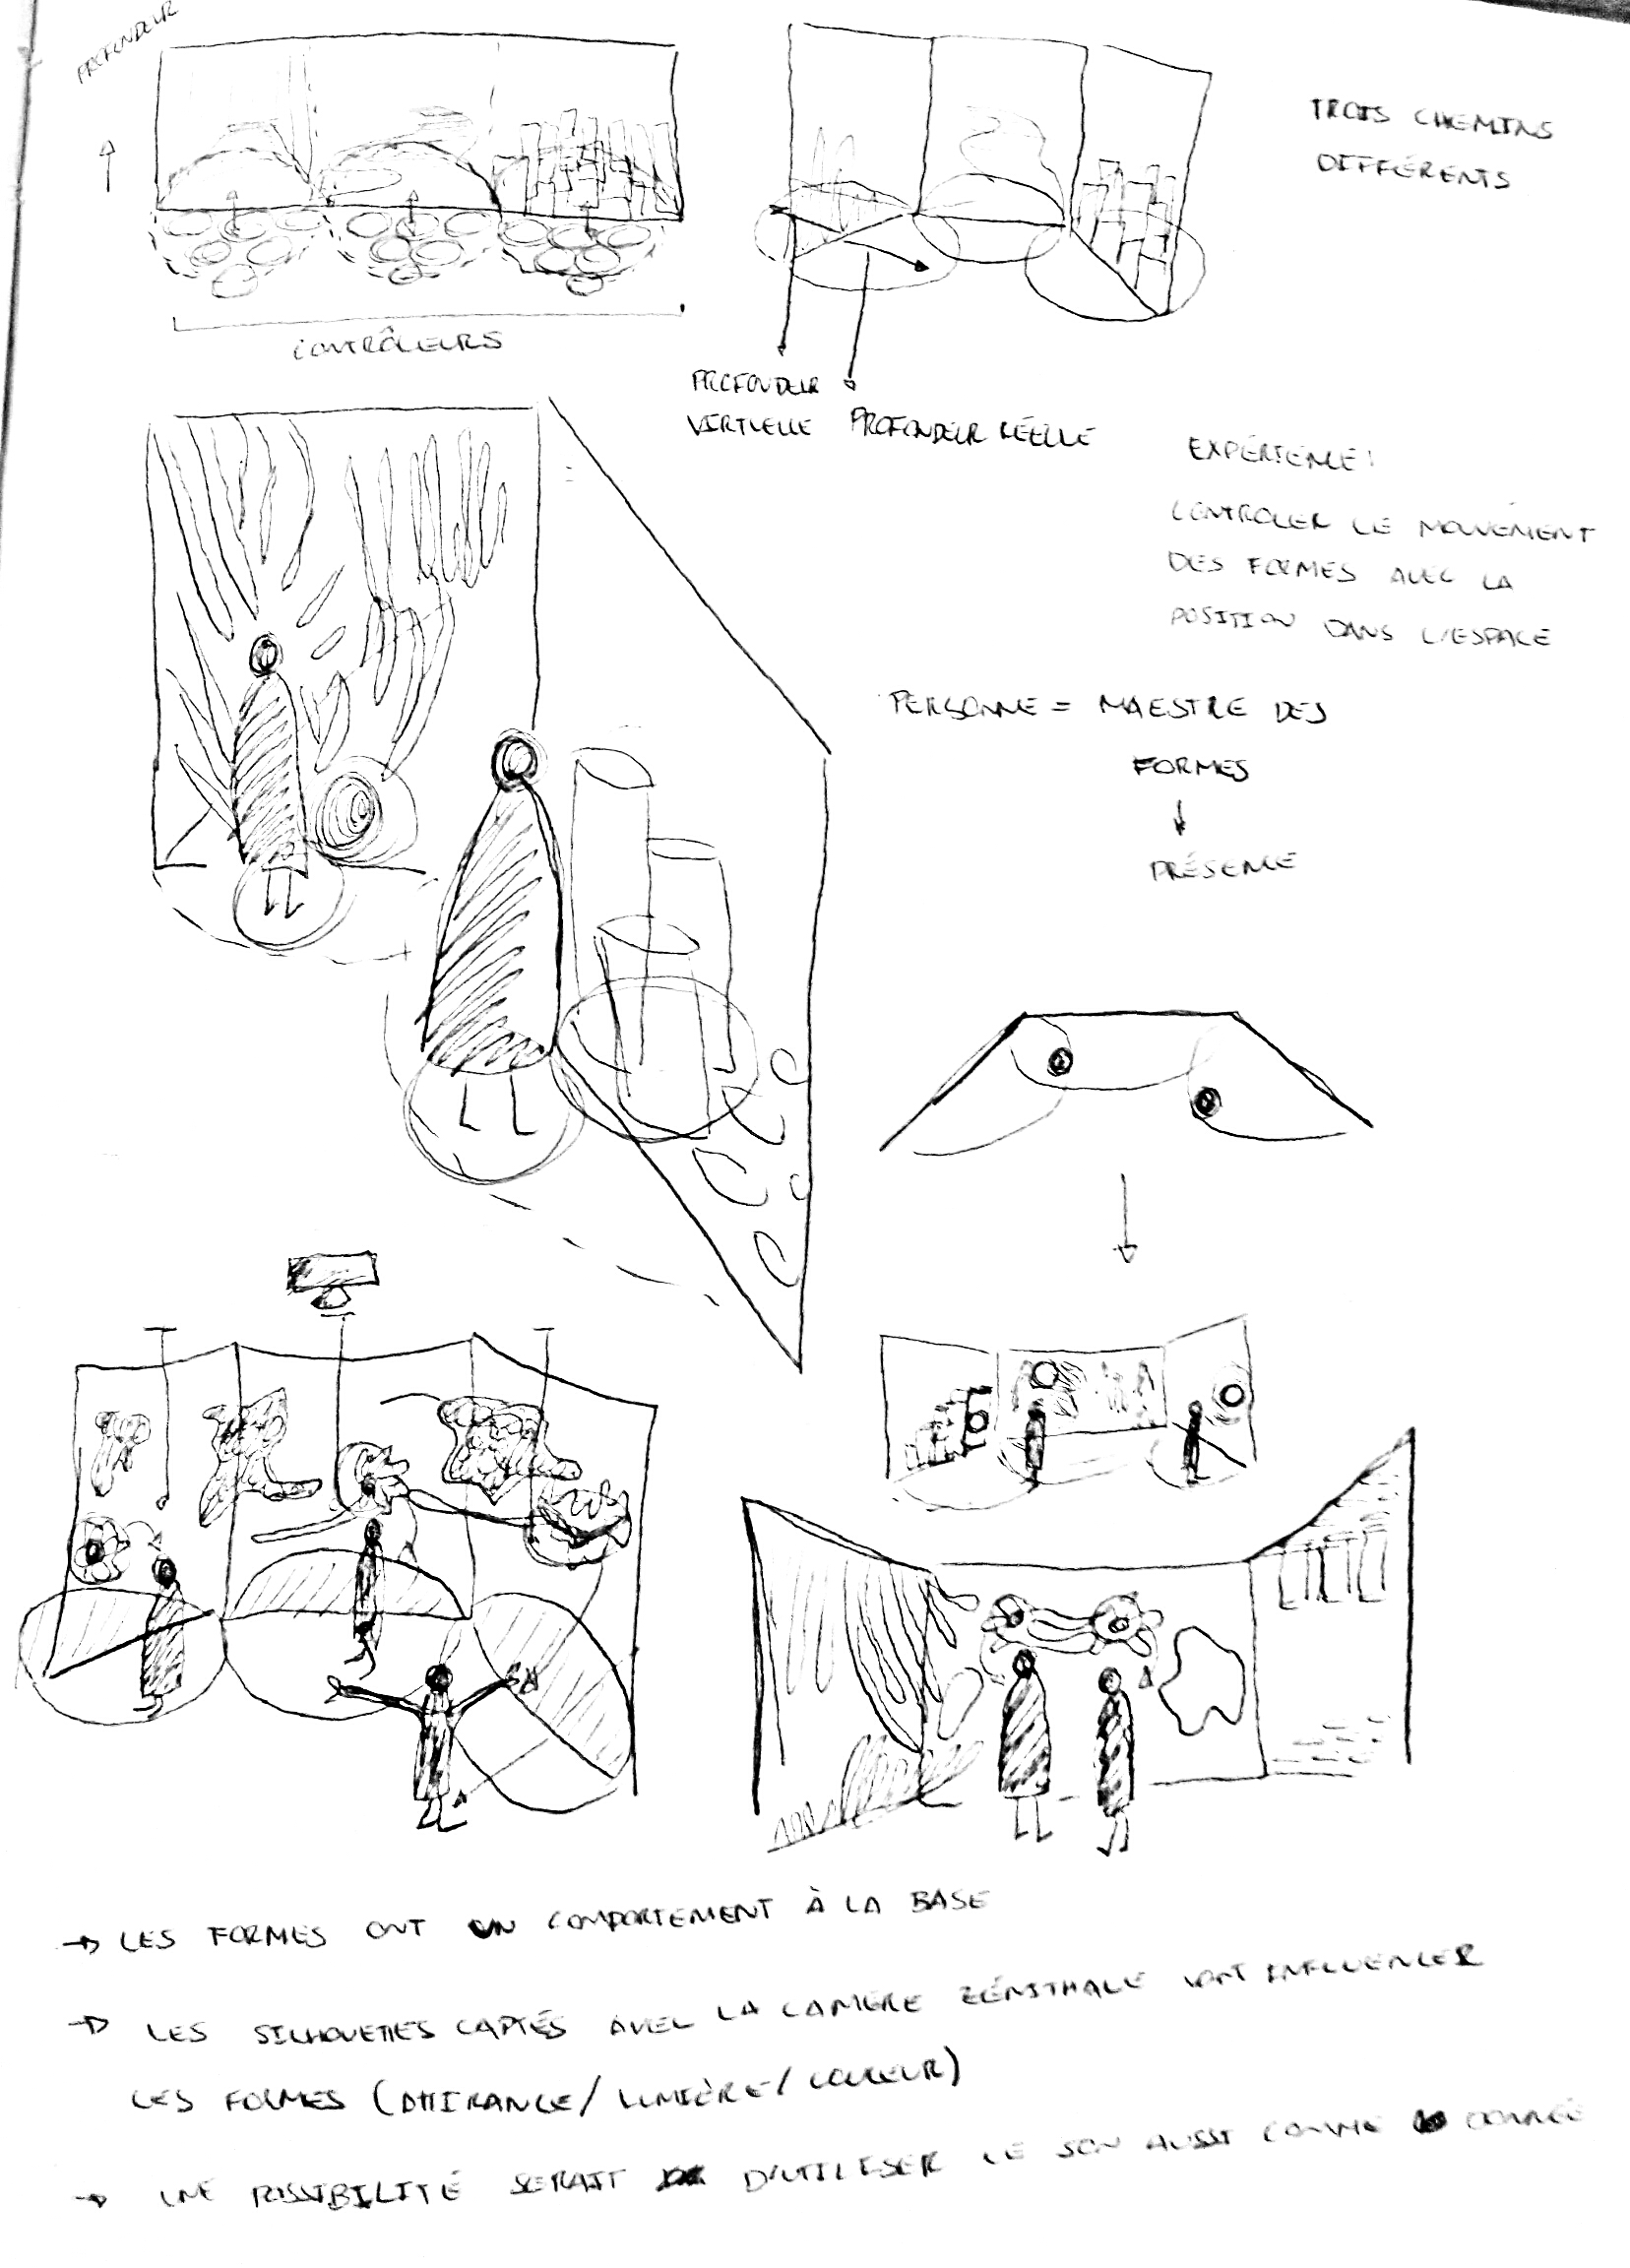 PROFONDEUR
TROIS CHEMINS
DIFFÉRENTS
CONTRÔLEURS
PROFONDEUR
VIRTUELLE
PROFONDEUR RÉELLE
EXPÉRIENCE:
CONTROLER LE MOUVEMENT
DES FORMES AVEC LA
POSITION DANS L'ESPACE
PERSONNE = MAESTRE DES
FORMES
↓
PRÉSENCE
→ LES FORMES ONT UN COMPORTEMENT À LA BASE
→ LES SILHOUETTES CAPTÉS AVEC LA CAMÉRE ZÉNITHALE VONT INFLUENCER
LES FORMES (ATTIRANCE/ LUMIÈRE/ COULEUR)
→ UNE POSSIBILITÉ SERAIT D'UTILISER LE SON AUSSI COMME DONNÉE